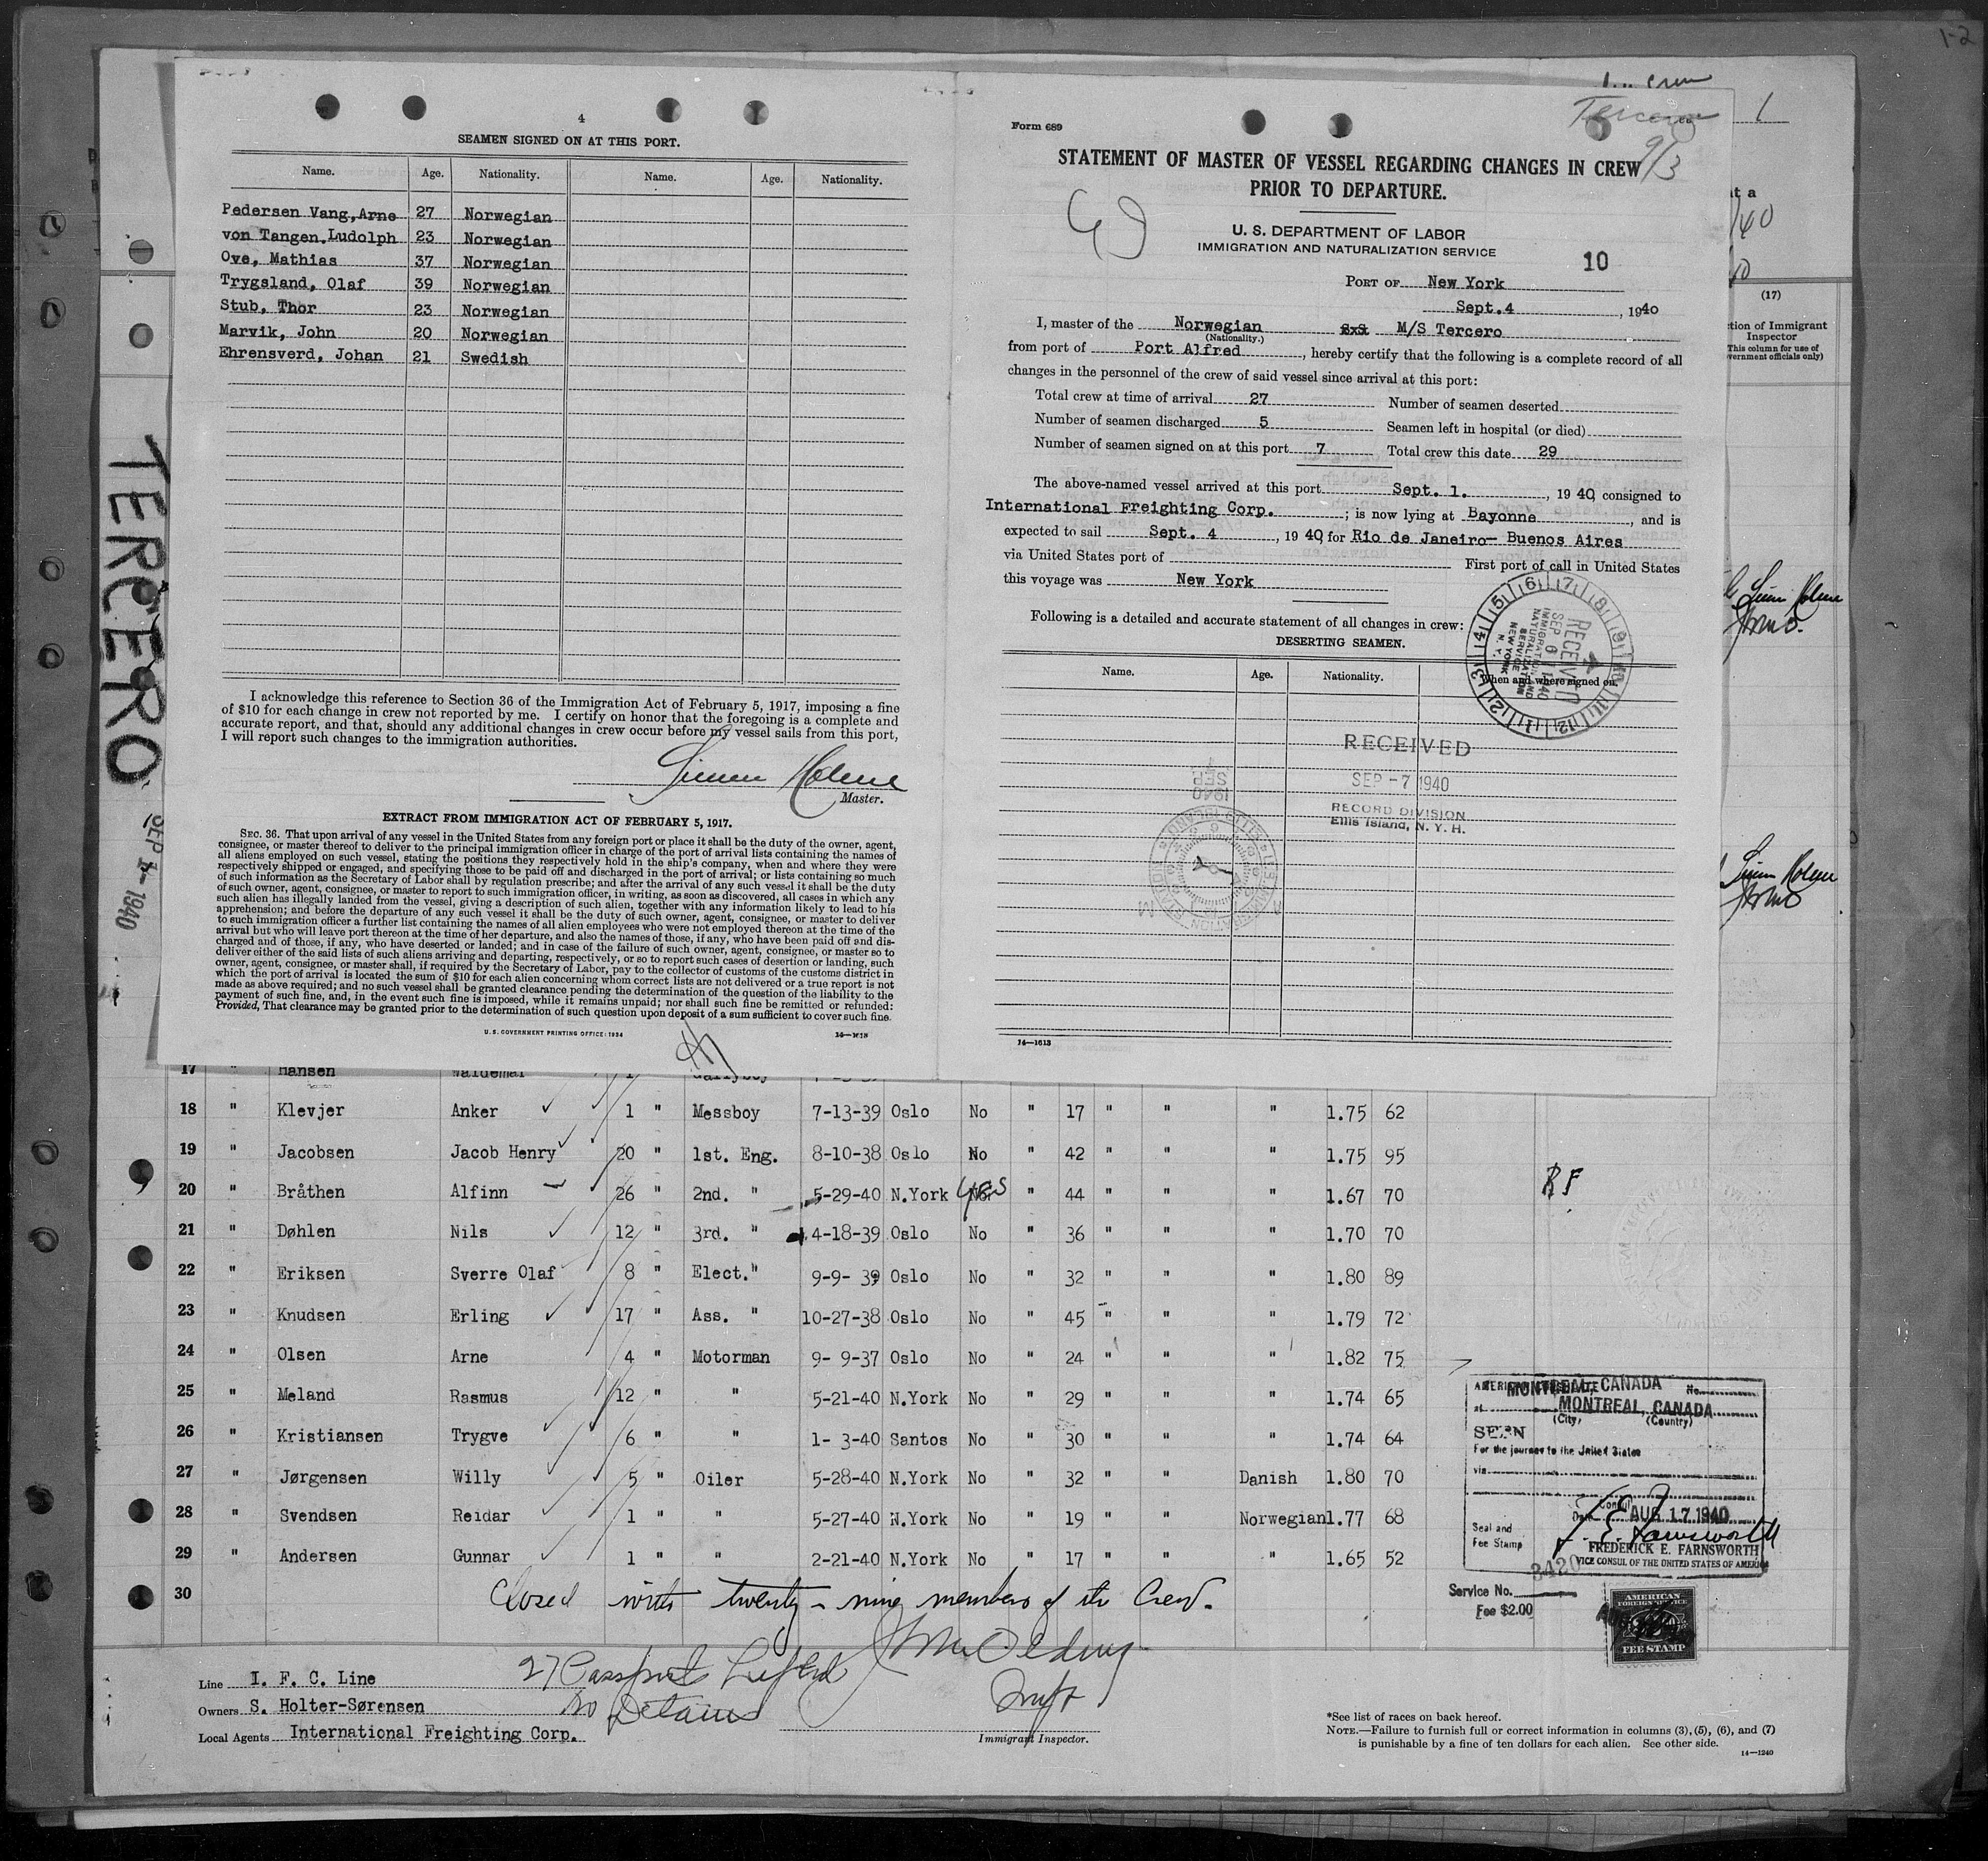 1-2
TERCERO
SEP 1 - 1940
4
SEAMEN SIGNED ON AT THIS PORT.
Name. Age. Nationality. Name. Age. Nationality.
Pedersen Vang, Arne 27 Norwegian
von Tangen, Ludolph 23 Norwegian
Ove, Mathias 37 Norwegian
Trygsland, Olaf 39 Norwegian
Stub, Thor 23 Norwegian
Marvik, John 20 Norwegian
Ehrensverd, Johan 21 Swedish
I acknowledge this reference to Section 36 of the Immigration Act of February 5, 1917, imposing a fine
of $10 for each change in crew not reported by me. I certify on honor that the foregoing is a complete and
accurate report, and that, should any additional changes in crew occur before my vessel sails from this port,
I will report such changes to the immigration authorities.
Holme
Master.
EXTRACT FROM IMMIGRATION ACT OF FEBRUARY 5, 1917.
SEC. 36. That upon arrival of any vessel in the United States from any foreign port or place it shall be the duty of the owner, agent,
consignee, or master thereof to deliver to the principal immigration officer in charge of the port of arrival lists containing the names of
all aliens employed on such vessel, stating the positions they respectively hold in the ship's company, when and where they were
respectively shipped or engaged, and specifying those to be paid off and discharged in the port of arrival; or lists containing so much
of such information as the Secretary of Labor shall by regulation prescribe; and after the arrival of any such vessel it shall be the duty
of such owner, agent, consignee, or master to report to such immigration officer, in writing, as soon as discovered, all cases in which any
such alien has illegally landed from the vessel, giving a description of such alien, together with any information likely to lead to his
apprehension; and before the departure of any such vessel it shall be the duty of such owner, agent, consignee, or master to deliver
to such immigration officer a further list containing the names of all alien employees who were not employed thereon at the time of the
arrival but who will leave port thereon at the time of her departure, and also the names of those, if any, who have been paid off and dis-
charged and of those, if any, who have deserted or landed; and in case of the failure of such owner, agent, consignee, or master so to
deliver either of the said lists of such aliens arriving and departing, respectively, or so to report such cases of desertion or landing, such
owner, agent, consignee, or master shall, if required by the Secretary of Labor, pay to the collector of customs of the customs district in
which the port of arrival is located the sum of $10 for each alien concerning whom correct lists are not delivered or a true report is not
made as above required; and no such vessel shall be granted clearance pending the determination of the question of the liability to the
payment of such fine, and, in the event such fine is imposed, while it remains unpaid; nor shall such fine be remitted or refunded:
Provided, That clearance may be granted prior to the determination of such question upon deposit of a sum sufficient to cover such fine.
U. S. GOVERNMENT PRINTING OFFICE: 1934
Form 689
Crew
Tercero 1
9/3
STATEMENT OF MASTER OF VESSEL REGARDING CHANGES IN CREW
PRIOR TO DEPARTURE.
U. S. DEPARTMENT OF LABOR
IMMIGRATION AND NATURALIZATION SERVICE
10
PORT OF New York
Sept.4, 1940
I, master of the Norwegian M/S Tercero
(Nationality.)
from port of Port Alfred, hereby certify that the following is a complete record of all
changes in the personnel of the crew of said vessel since arrival at this port:
Total crew at time of arrival 27 Number of seamen deserted
Number of seamen discharged 5 Seamen left in hospital (or died)
Number of seamen signed on at this port 7 Total crew this date 29
The above-named vessel arrived at this port Sept. 1., 1940, consigned to
International Freighting Corp.; is now lying at Bayonne, and is
expected to sail Sept. 4, 1940, for Rio de Janeiro- Buenos Aires
via United States port of First port of call in United States
this voyage was New York
Following is a detailed and accurate statement of all changes in crew:
DESERTING SEAMEN.
Name. Age. Nationality. When and where signed on.
RECEIVED
SEP 6 1940
IMMIGRATION AND
NATURALIZATION
SERVICE
NEW YORK
N. Y.
RECEIVED
SEP -7 1940
RECORD DIVISION
Ellis Island, N. Y. H.
14-1613
(17)
tion of Immigrant
Inspector
This column for use of
vernment officials only)
17 " Hansen Waldemar
18 " Klevjer Anker 1 " Messboy 7-13-39 Oslo No " 17 " " " 1.75 62
19 " Jacobsen Jacob Henry 20 " 1st. Eng. 8-10-38 Oslo No " 42 " " " 1.75 95
20 " Bråthen Alfinn 26 " 2nd. " 5-29-40 N.York No Yes " 44 " " " 1.67 70 RF
21 " Døhlen Nils 12 " 3rd. " 4-18-39 Oslo No " 36 " " " 1.70 70
22 " Eriksen Sverre Olaf 8 " Elect." 9-9- 39 Oslo No " 32 " " " 1.80 89
23 " Knudsen Erling 17 " Ass. " 10-27-38 Oslo No " 45 " " " 1.79 72
24 " Olsen Arne 4 " Motorman 9- 9-37 Oslo No " 24 " " " 1.82 75
25 " Meland Rasmus 12 " " 5-21-40 N.York No " 29 " " " 1.74 65
26 " Kristiansen Trygve 6 " " 1- 3-40 Santos No " 30 " " " 1.74 64
27 " Jørgensen Willy 5 " Oiler 5-28-40 N.York No " 32 " " Danish 1.80 70
28 " Svendsen Reidar 1 " " 5-27-40 N.York No " 19 " " Norwegian 1.77 68
29 " Andersen Gunnar 1 " " 2-21-40 N.York No " 17 " " " 1.65 52
30 Closed with twenty-nine members of the Crew.
MONTREAL, CANADA No.
at MONTREAL, CANADA
(City) (Country)
SEEN
For the journey to the United States
via
Consul
Date AUG 17 1940
Seal and
Fee Stamp
FREDERICK E. FARNSWORTH
VICE CONSUL OF THE UNITED STATES OF AMERICA
3420
Service No.
Fee $2.00
AMERICAN
FOREIGN SERVICE
FEE STAMP
27 Passports Lifted
No Detains
Line I. F. C. Line
Owners S. Holter-Sørensen
Local Agents International Freighting Corp.
Immigrant Inspector.
*See list of races on back hereof.
NOTE.—Failure to furnish full or correct information in columns (3), (5), (6), and (7)
is punishable by a fine of ten dollars for each alien. See other side.
14-1240